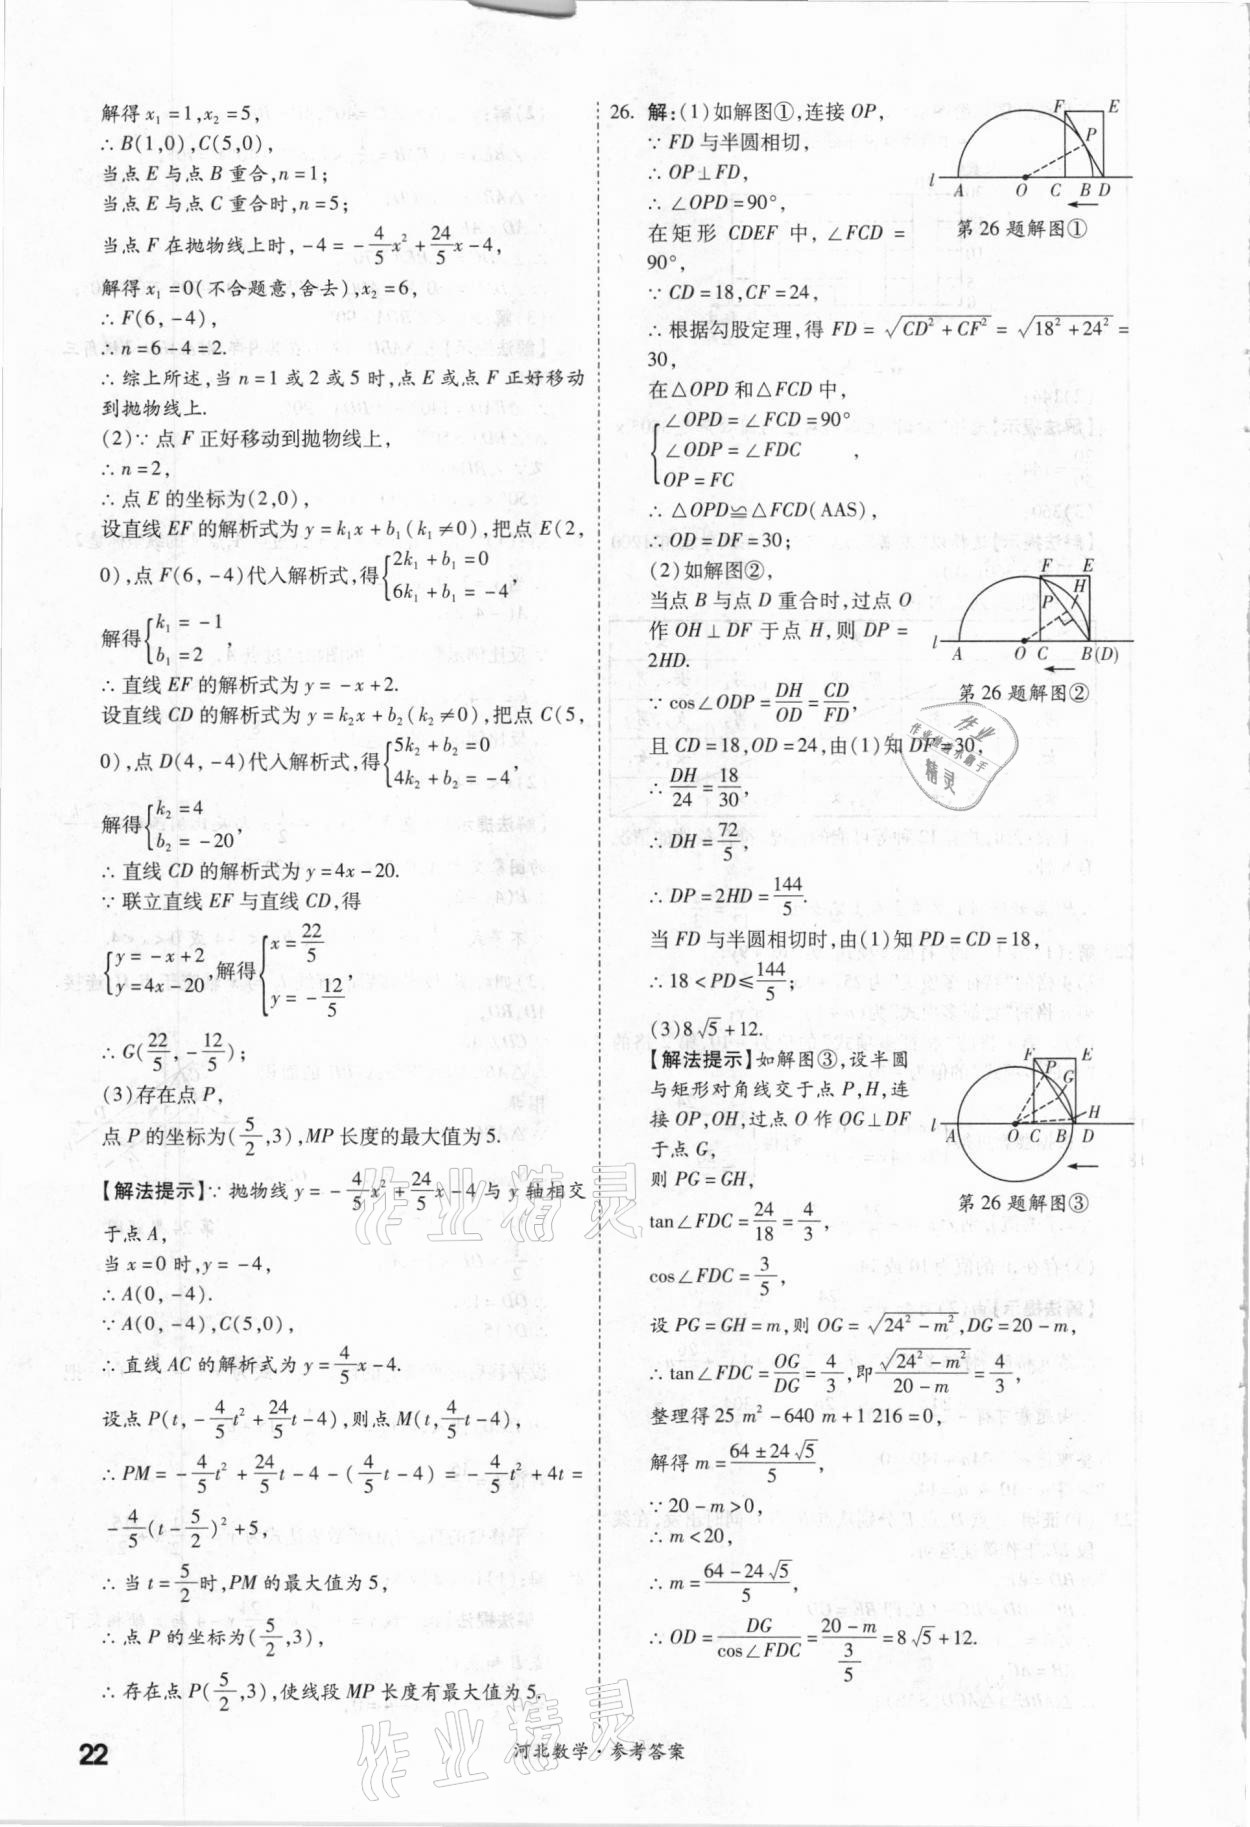 解得 x₁=1,x₂=5,
∴B(1,0),C(5,0),
当点 E 与点 B 重合,n=1;
当点 E 与点 C 重合时,n=5;
当点 F 在抛物线上时,-4=-4/5x²+24/5x-4,
解得 x₁=0(不合题意,舍去),x₂=6,
∴F(6,-4),
∴n=6-4=2.
∴综上所述,当 n=1 或 2 或 5 时,点 E 或点 F 正好移动
到抛物线上.
(2)∵点 F 正好移动到抛物线上,
∴n=2,
∴点 E 的坐标为(2,0),
设直线 EF 的解析式为 y=k₁x+b₁(k₁≠0),把点 E(2,
0),点 F(6,-4)代入解析式,得{2k₁+b₁=0
6k₁+b₁=-4,
解得{k₁=-1
b₁=2,
∴直线 EF 的解析式为 y=-x+2.
设直线 CD 的解析式为 y=k₂x+b₂(k₂≠0),把点 C(5,
0),点 D(4,-4)代入解析式,得{5k₂+b₂=0
4k₂+b₂=-4,
解得{k₂=4
b₂=-20,
∴直线 CD 的解析式为 y=4x-20.
∵联立直线 EF 与直线 CD,得
{y=-x+2
y=4x-20,解得{x=22/5
y=-12/5
∴G(22/5,-12/5);
(3)存在点 P,
点 P 的坐标为(5/2,3),MP 长度的最大值为 5.
【解法提示】∵抛物线 y=-4/5x²+24/5x-4 与 y 轴相交
于点 A,
当 x=0 时,y=-4,
∴A(0,-4).
∵A(0,-4),C(5,0),
∴直线 AC 的解析式为 y=4/5x-4.
设点 P(t,-4/5t²+24/5t-4),则点 M(t,4/5t-4),
∴PM=-4/5t²+24/5t-4-(4/5t-4)=-4/5t²+4t=
-4/5(t-5/2)²+5,
∴当 t=5/2时,PM 的最大值为 5,
∴点 P 的坐标为(5/2,3),
∴存在点 P(5/2,3),使线段 MP 长度有最大值为 5.
26. 解:(1)如解图①,连接 OP,
∵FD 与半圆相切,
∴OP⊥FD,
∴∠OPD=90°,
在矩形 CDEF 中,∠FCD=
90°,
∵CD=18,CF=24,
∴根据勾股定理,得 FD=√(CD²+CF²)=√(18²+24²)=
30,
在△OPD 和△FCD 中,
{∠OPD=∠FCD=90°
∠ODP=∠FDC,
OP=FC
∴△OPD≌△FCD(AAS),
∴OD=DF=30;
(2)如解图②,
当点 B 与点 D 重合时,过点 O
作 OH⊥DF 于点 H,则 DP=
2HD.
∵cos∠ODP=DH/OD=CD/FD,
且 CD=18,OD=24,由(1)知 DF=30,
∴DH/24=18/30,
∴DH=72/5,
∴DP=2HD=144/5.
当 FD 与半圆相切时,由(1)知 PD=CD=18,
∴18<PD≤144/5;
(3)8√5+12.
【解法提示】如解图③,设半圆
与矩形对角线交于点 P,H,连
接 OP,OH,过点 O 作 OG⊥DF
于点 G,
则 PG=GH,
tan∠FDC=24/18=4/3,
cos∠FDC=3/5,
设 PG=GH=m,则 OG=√(24²-m²),DG=20-m,
∴tan∠FDC=OG/DG=4/3,即√(24²-m²)/(20-m)=4/3,
整理得 25 m²-640 m+1 216=0,
解得 m=(64±24√5)/5,
∵20-m>0,
∴m<20,
∴m=(64-24√5)/5,
∴OD=DG/cos∠FDC=(20-m)/(3/5)=8√5+12.
F E
P
l A O C B D
第 26 题解图①
F E
P H
l A O C B(D)
第 26 题解图②
F E
P G
H
l A O C B D
第 26 题解图③
作业
精灵
作业精灵
作业精灵
22
河北数学·参考答案